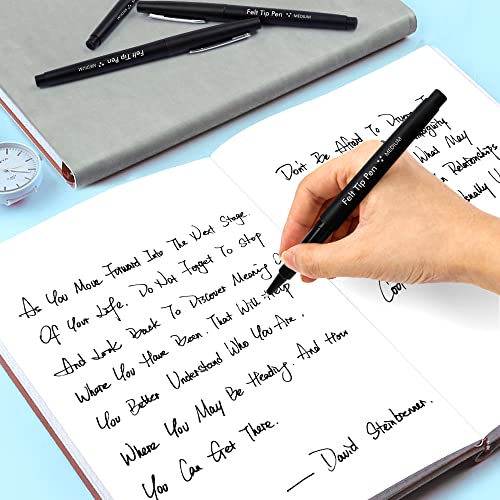 Felt Tip Pen MEDIUM
MEDIUM
Felt Tip Pen MEDIUM
As You Move Forward Into The Next Stage
Of Your Life. Do Not Forget To Stop
And Look Back To Discover Meaning
Where You Have Been. That Will Help
You Better Understand Who You Are.
Where You May Be Heading. And How
You Can Get There.
— David Steinbrenner.
Don't Be Afraid To
Ambiguity
What May
In Relationships
Felt Tip Pen MEDIUM